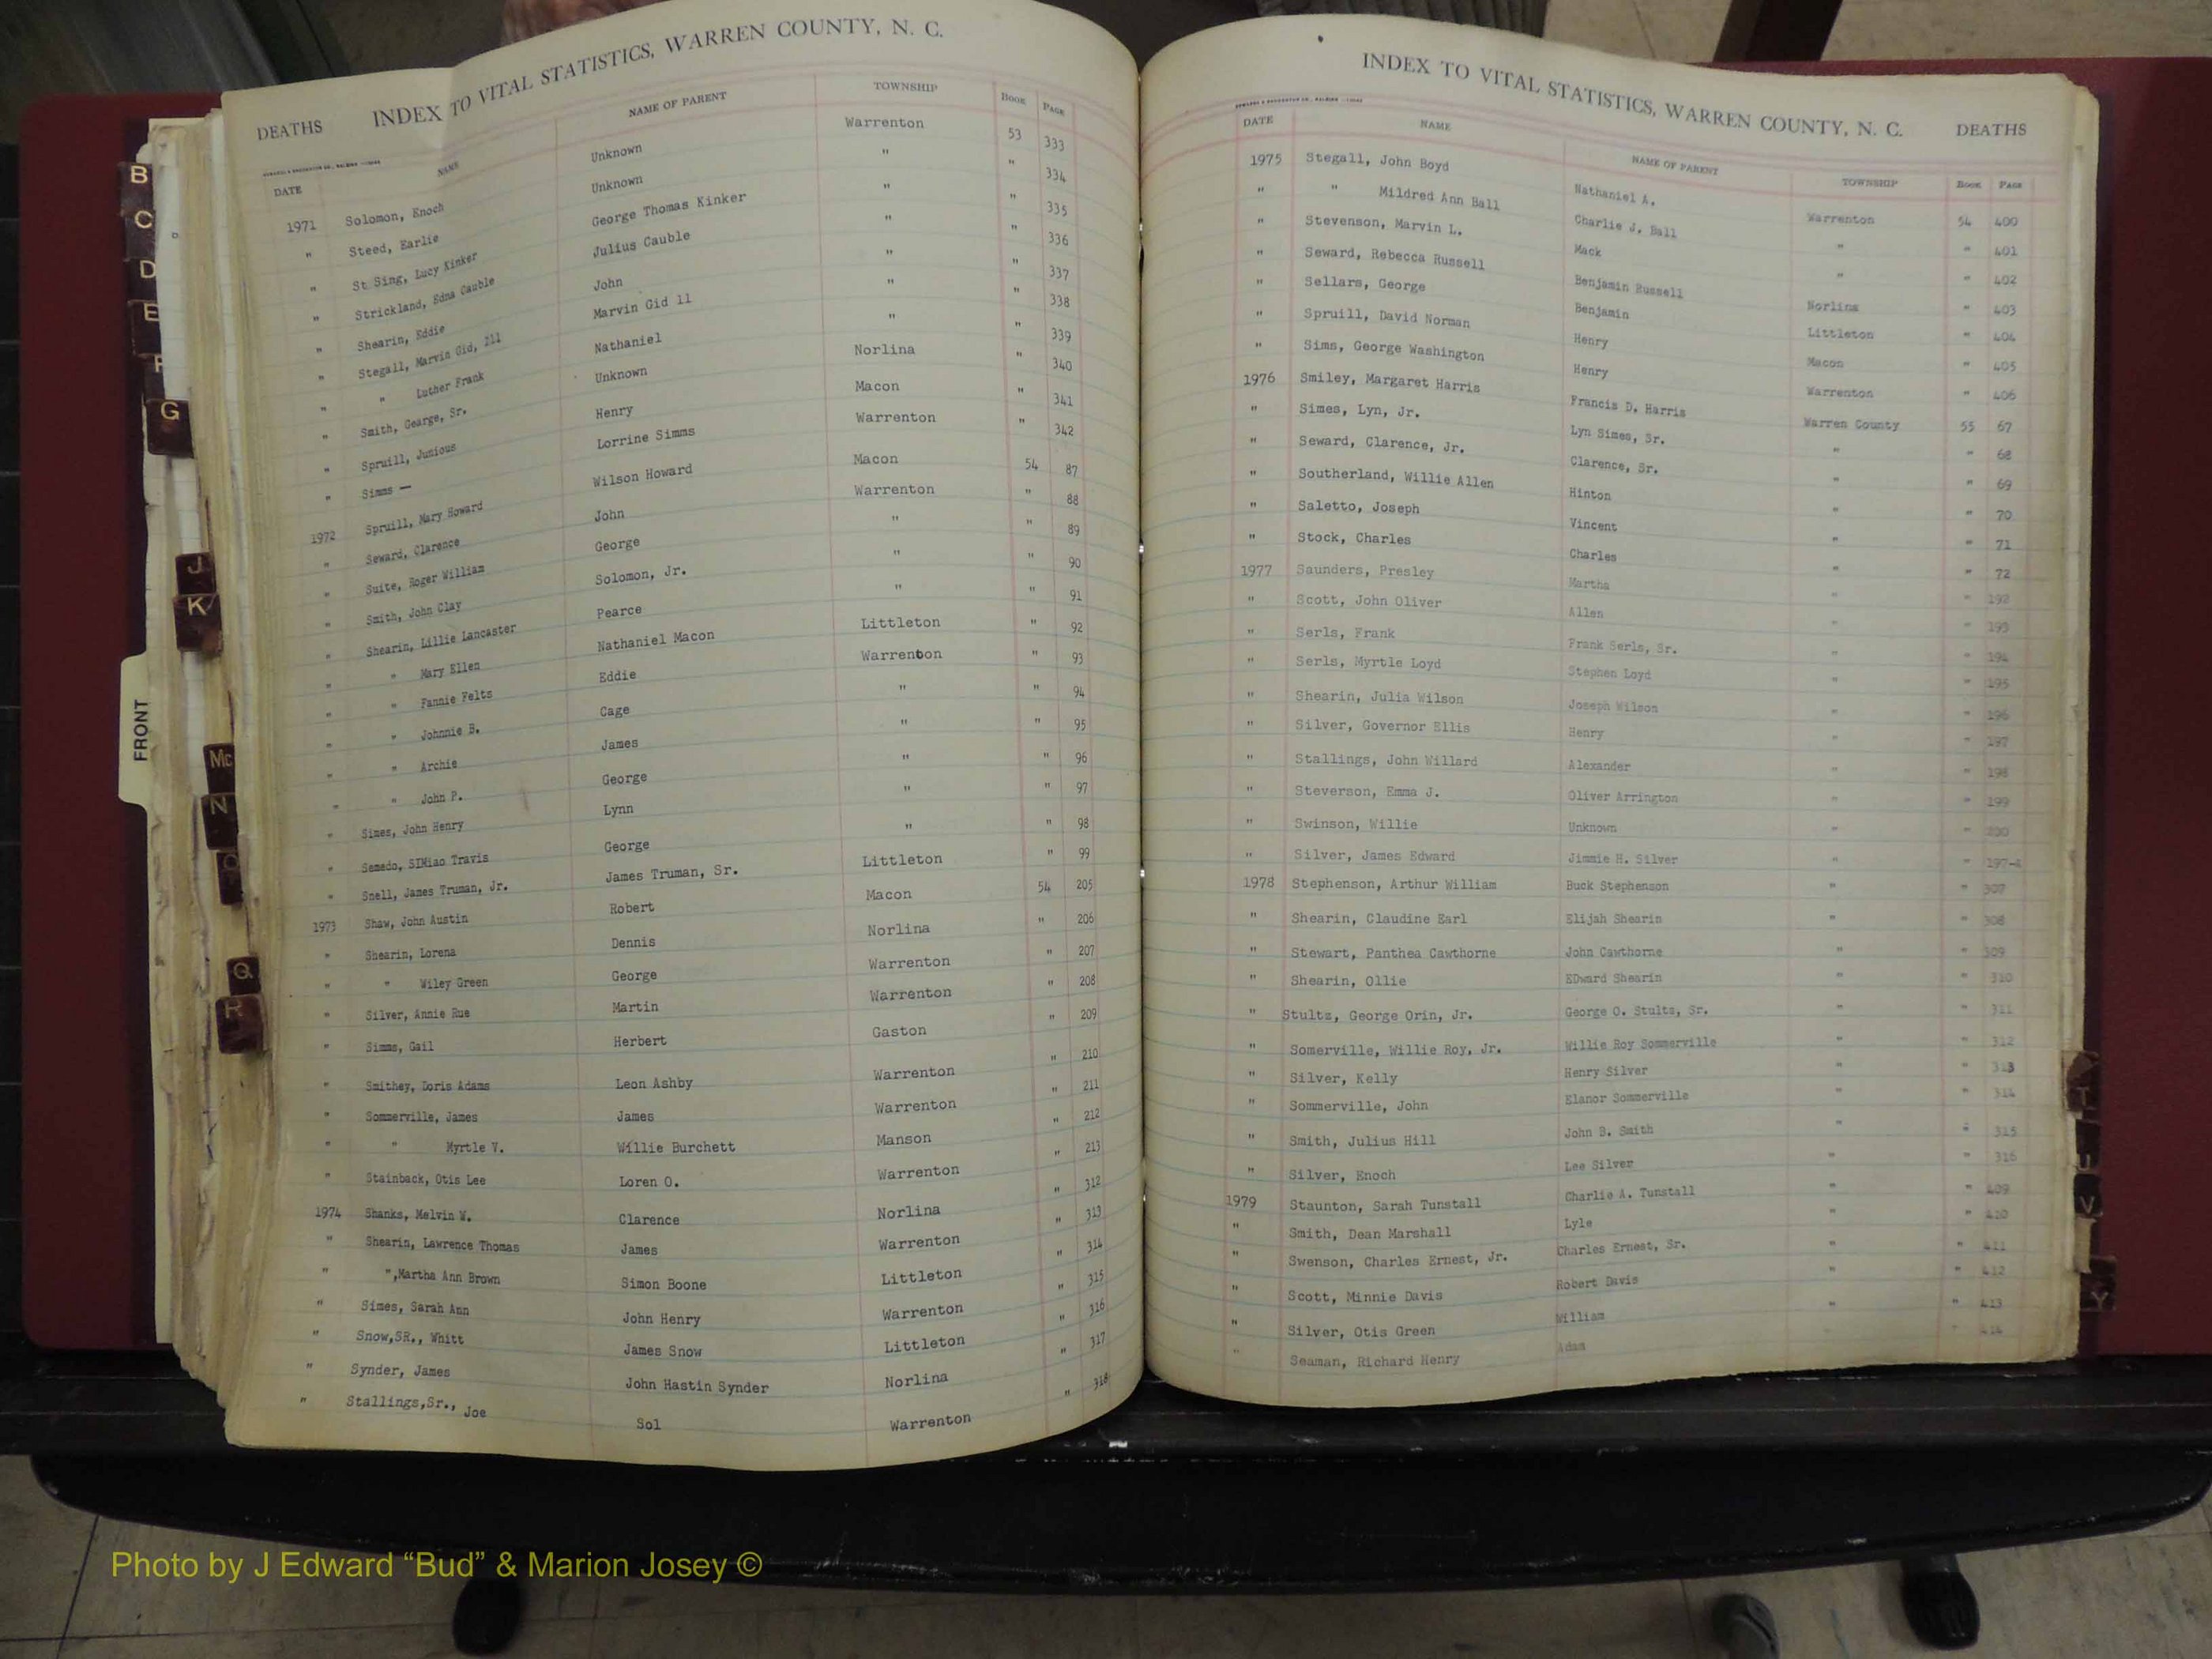 DEATHS INDEX TO VITAL STATISTICS, WARREN COUNTY, N. C.
DATE NAME NAME OF PARENT TOWNSHIP BOOK PAGE
1971 Solomon, Enoch Unknown Warrenton 53 333
" Steed, Earlie Unknown " " 334
" St Sing, Lucy Kinker George Thomas Kinker " " 335
" Strickland, Edna Cauble Julius Cauble " " 336
" Shearin, Eddie John " " 337
" Stegall, Marvin Gid, 111 Marvin Gid 11 " " 338
" " Luther Frank Nathaniel " " 339
" Smith, George, Sr. Unknown Norlina " 340
" Spruill, Junious Henry Macon " 341
" Simms — Lorrine Simms Warrenton " 342
1972 Spruill, Mary Howard Wilson Howard Macon 54 87
" Seward, Clarence John Warrenton " 88
" Suite, Roger William George " " 89
" Smith, John Clay Solomon, Jr. " " 90
" Shearin, Lillie Lancaster Pearce " " 91
" " Mary Ellen Nathaniel Macon Littleton " 92
" " Fannie Felts Eddie Warrenton " 93
" " Johnnie B. Cage " " 94
" " Archie James " " 95
" " John P. George " " 96
" Simes, John Henry Lynn " " 97
" Semedo, SIMiao Travis George " " 98
" Snell, James Truman, Jr. James Truman, Sr. Littleton " 99
1973 Shaw, John Austin Robert Macon 54 205
" Shearin, Lorena Dennis Norlina " 206
" " Wiley Green George Warrenton " 207
" Silver, Annie Rue Martin Warrenton " 208
" Simms, Gail Herbert Gaston " 209
" Smithey, Doris Adams Leon Ashby Warrenton " 210
" Sommerville, James James Warrenton " 211
" " Myrtle V. Willie Burchett Manson " 212
" Stainback, Otis Lee Loren O. Warrenton " 213
1974 Shanks, Melvin W. Clarence Norlina " 312
" Shearin, Lawrence Thomas James Warrenton " 313
" ",Martha Ann Brown Simon Boone Littleton " 314
" Simes, Sarah Ann John Henry Warrenton " 315
" Snow,SR., Whitt James Snow Littleton " 316
" Synder, James John Hastin Synder Norlina " 317
" Stallings,Sr., Joe Sol Warrenton " 318
INDEX TO VITAL STATISTICS, WARREN COUNTY, N. C. DEATHS
DATE NAME NAME OF PARENT TOWNSHIP BOOK PAGE
1975 Stegall, John Boyd Nathaniel A. Warrenton 54 400
" " Mildred Ann Ball Charlie J. Ball " " 401
" Stevenson, Marvin L. Mack " " 402
" Seward, Rebecca Russell Benjamin Russell Norlina " 403
" Sellars, George Benjamin Littleton " 404
" Spruill, David Norman Henry Macon " 405
" Sims, George Washington Henry Warrenton " 406
1976 Smiley, Margaret Harris Francis D. Harris Warren County 55 67
" Simes, Lyn, Jr. Lyn Simes, Sr. " " 68
" Seward, Clarence, Jr. Clarence, Sr. " " 69
" Southerland, Willie Allen Hinton " " 70
" Saletto, Joseph Vincent " " 71
" Stock, Charles Charles " " 72
1977 Saunders, Presley Martha " " 192
" Scott, John Oliver Allen " " 193
" Serls, Frank Frank Serls, Sr. " " 194
" Serls, Myrtle Loyd Stephen Loyd " " 195
" Shearin, Julia Wilson Joseph Wilson " " 196
" Silver, Governor Ellis Henry " " 197
" Stallings, John Willard Alexander " " 198
" Steverson, Emma J. Oliver Arrington " " 199
" Swinson, Willie Unknown " " 200
" Silver, James Edward Jimmie H. Silver " " 197-A
1978 Stephenson, Arthur William Buck Stephenson " " 307
" Shearin, Claudine Earl Elijah Shearin " " 308
" Stewart, Panthea Cawthorne John Cawthorne " " 309
" Shearin, Ollie EDward Shearin " " 310
" Stultz, George Orin, Jr. George O. Stultz, Sr. " " 311
" Somerville, Willie Roy, Jr. Willie Roy Sommerville " " 312
" Silver, Kelly Henry Silver " " 313
" Sommerville, John Elanor Sommerville " " 314
" Smith, Julius Hill John B. Smith " " 315
" Silver, Enoch Lee Silver " " 316
1979 Staunton, Sarah Tunstall Charlie A. Tunstall " " 409
" Smith, Dean Marshall Lyle " " 410
" Swenson, Charles Ernest, Jr. Charles Ernest, Sr. " " 411
" Scott, Minnie Davis Robert Davis " " 412
" Silver, Otis Green William " " 413
" Seaman, Richard Henry Adam " 414
B
C
D
E
F
G
J
K
FRONT
Mc
N
O
Q
R
U
V
Y
Photo by J Edward “Bud” & Marion Josey ©